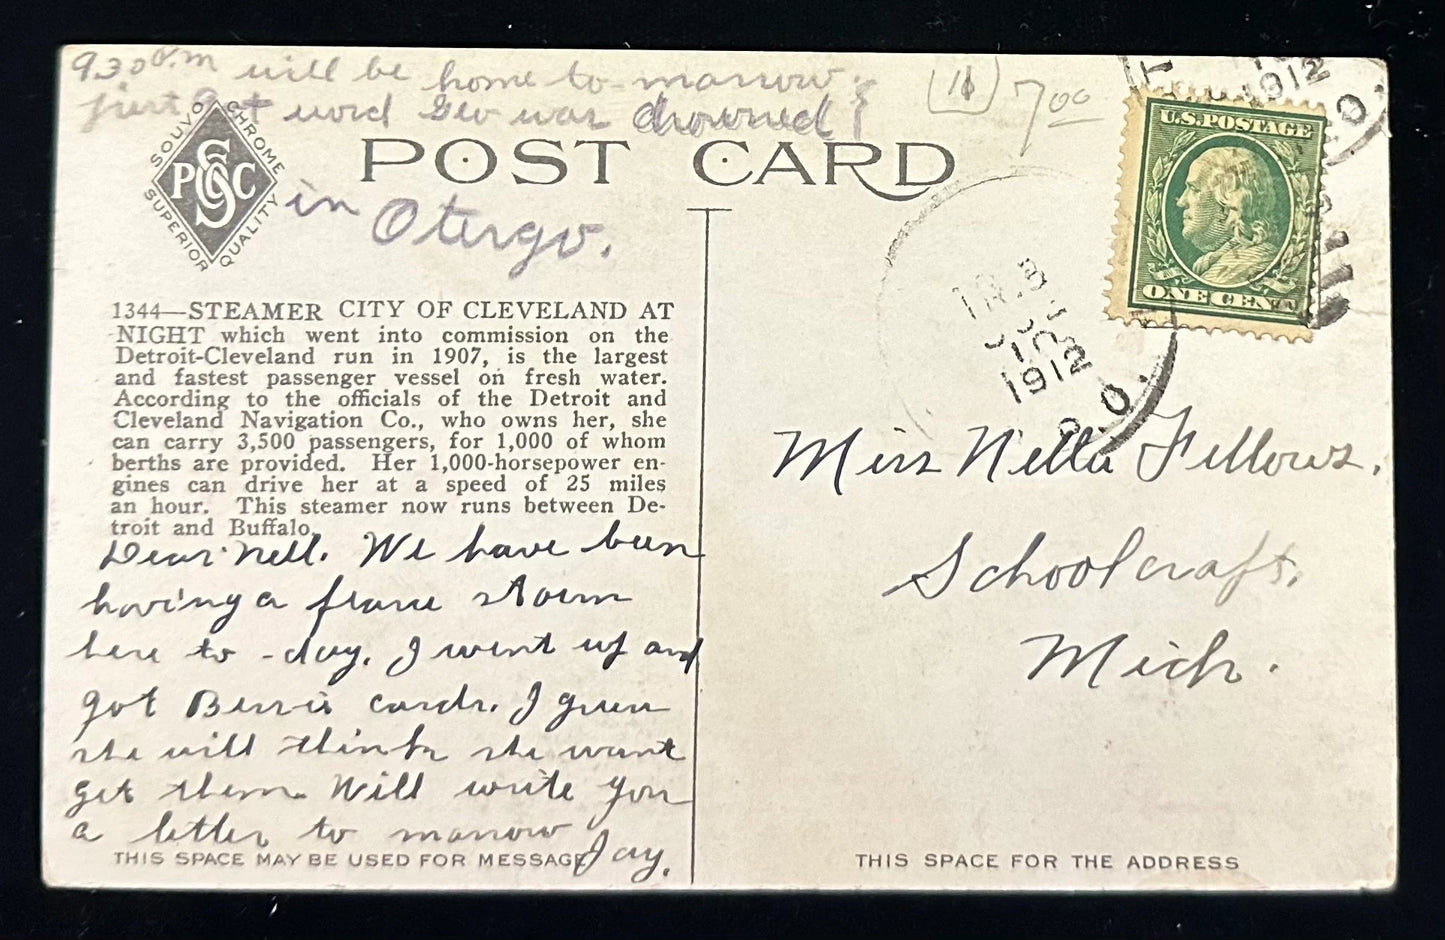 930 P.M will be home to-morrow.
just got word Geo was drowned
in Otsego.
11
7.00
POST CARD
SOUVO CHROME
SUPERIOR QUALITY
U.S. POSTAGE
ONE CENT
1912
1912
1344—STEAMER CITY OF CLEVELAND AT
NIGHT which went into commission on the
Detroit-Cleveland run in 1907, is the largest
and fastest passenger vessel on fresh water.
According to the officials of the Detroit and
Cleveland Navigation Co., who owns her, she
can carry 3,500 passengers, for 1,000 of whom
berths are provided. Her 1,000-horsepower en-
gines can drive her at a speed of 25 miles
an hour. This steamer now runs between De-
troit and Buffalo.
Dear Nell. We have been
having a storm
here to-day. I went up and
got cards. I guess
she will think she wont
get them. Will write you
a letter to morrow
Jay.
Miss Nella Fellows.
Schoolcraft.
Mich.
THIS SPACE MAY BE USED FOR MESSAGE
THIS SPACE FOR THE ADDRESS